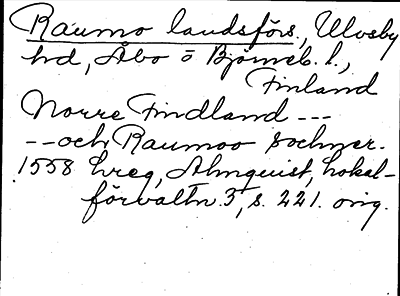 Raumo landsförs., Ulvsby
hd, Åbo o Björneb. l.,
Finland
Norre Findland ---
-- och Raumoo sochner.
1558 hreg, Almquist, Lokal-
förvaltn. 3, s. 221. orig.